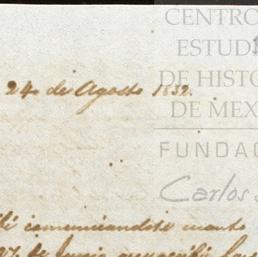 CENTRO
ESTUD
DE HISTO
DE MEX
FUNDAC
Carlos
24 de Agosto 1832.
comunicandote cuanto
de Junio